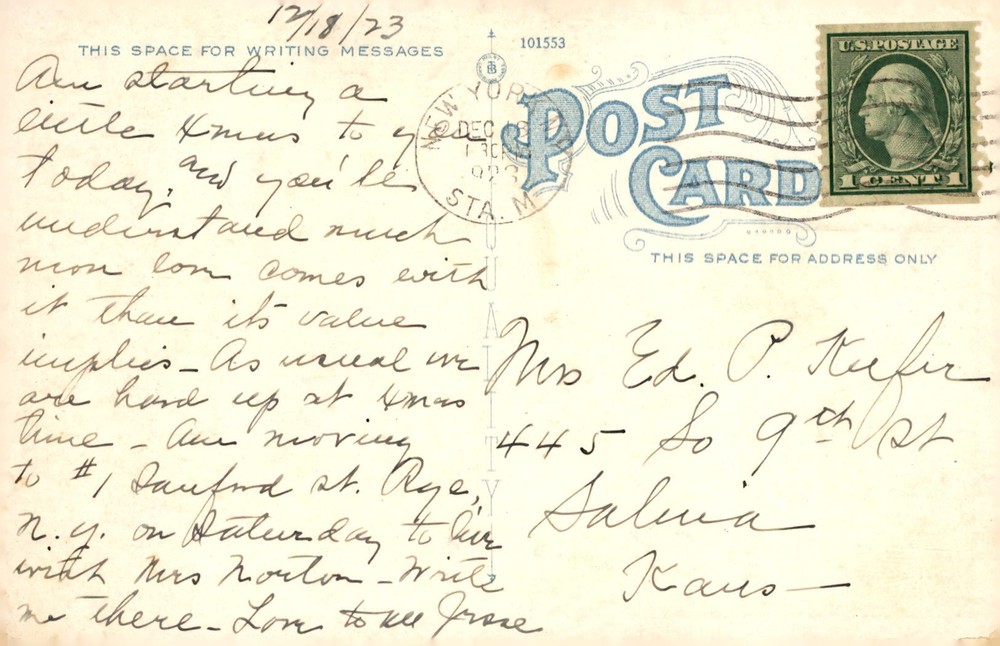 12/18/23
THIS SPACE FOR WRITING MESSAGES
101553
Am starting a
little Xmas to you
today, and you'll
understand much
more love comes with
it than its value
implies – As usual we
are hard up at Xmas
time – Am moving
to #1 Sanford st. Rye,
N.Y. on Saturday to live
with Mrs Norton – Write
me there – Love to all Jesse
NEW YORK
DEC
1923
STA. M
POST
CARD
U.S. POSTAGE
1 CENT 1
THIS SPACE FOR ADDRESS ONLY
Mrs Ed. P. Kiefer
445 So 9th st
Salina
Kans –
QUALITY